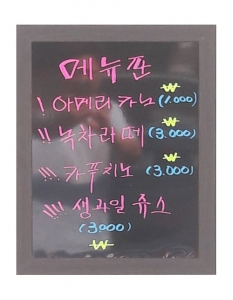 메뉴판
₩
! 아메리카노 (1.000)
₩
!! 녹차라떼 (3.000)
₩
!!! 카푸치노 (3.000)
!!!! 생과일 쥬스
(3000)
₩